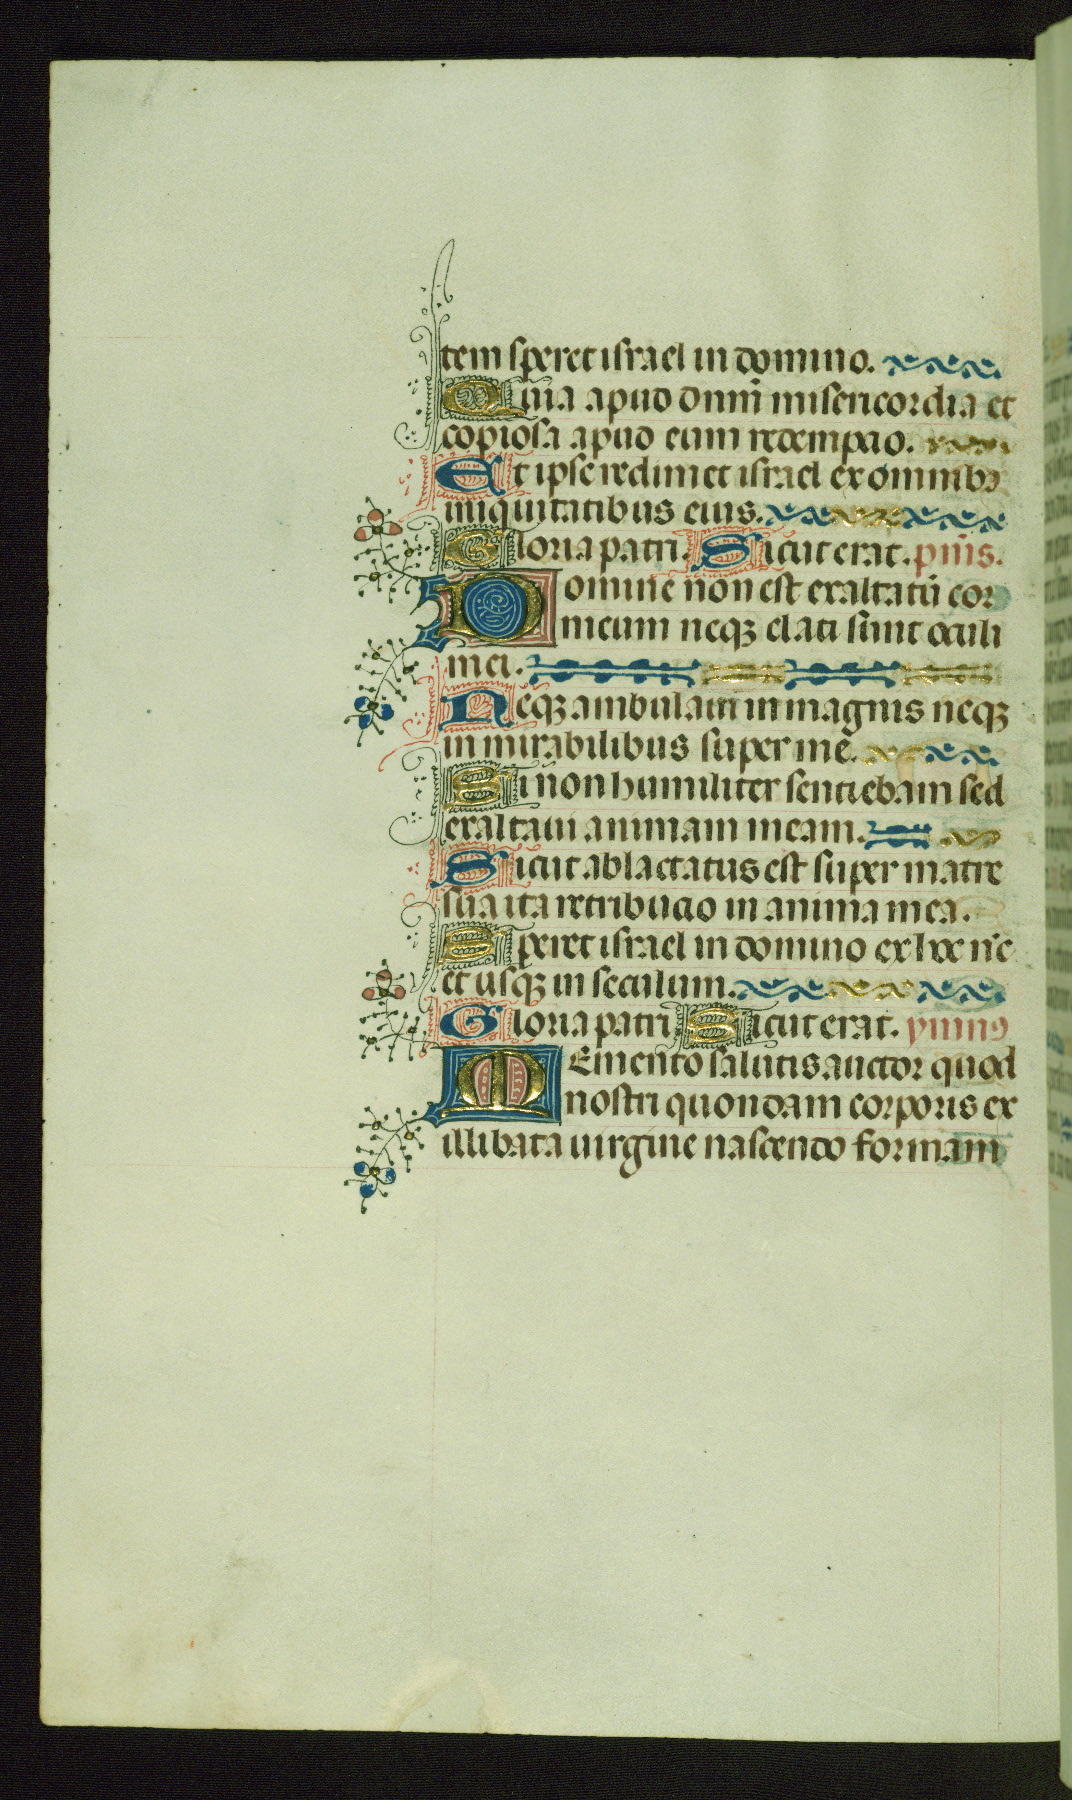 tem speret israel in domino.
Quia apud dnm̄ misericordia et
copiosa apud eum redempcio.
Et ipse redimet israel ex omnibꝫ
iniquitatibus eius.
Gloria patri. Sicut erat. pm̄s.
Domine non est exaltatū cor
meum neqꝫ elati sunt oculi
mei.
Neqꝫ ambulaui in magnis neqꝫ
in mirabilibus super me.
Si non humiliter sentiebam sed
exaltaui animam meam.
Sicut ablactatus est super matre
sua ita retribucio in anima mea.
Speret israel in domino ex hoc nc̄
et usqꝫ in seculum.
Gloria patri Sicut erat. ymnꝰ
Memento salutis auctor quod
nostri quondam corporis ex
illibata uirgine nascendo formam